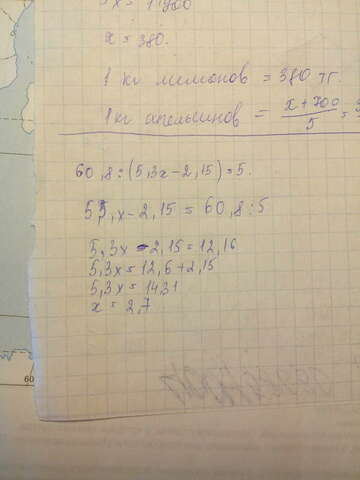 x = 380.
1 кг лимонов = 380 тг.
1 кг апельсинов = x + 700 / 5 =
60,8 : (5,3x - 2,15) = 5.
5,x - 2,15 = 60,8 : 5
5,3x - 2,15 = 12,16
5,3x = 12,6 + 2,15
5,3x = 1431
x = 2,7
60